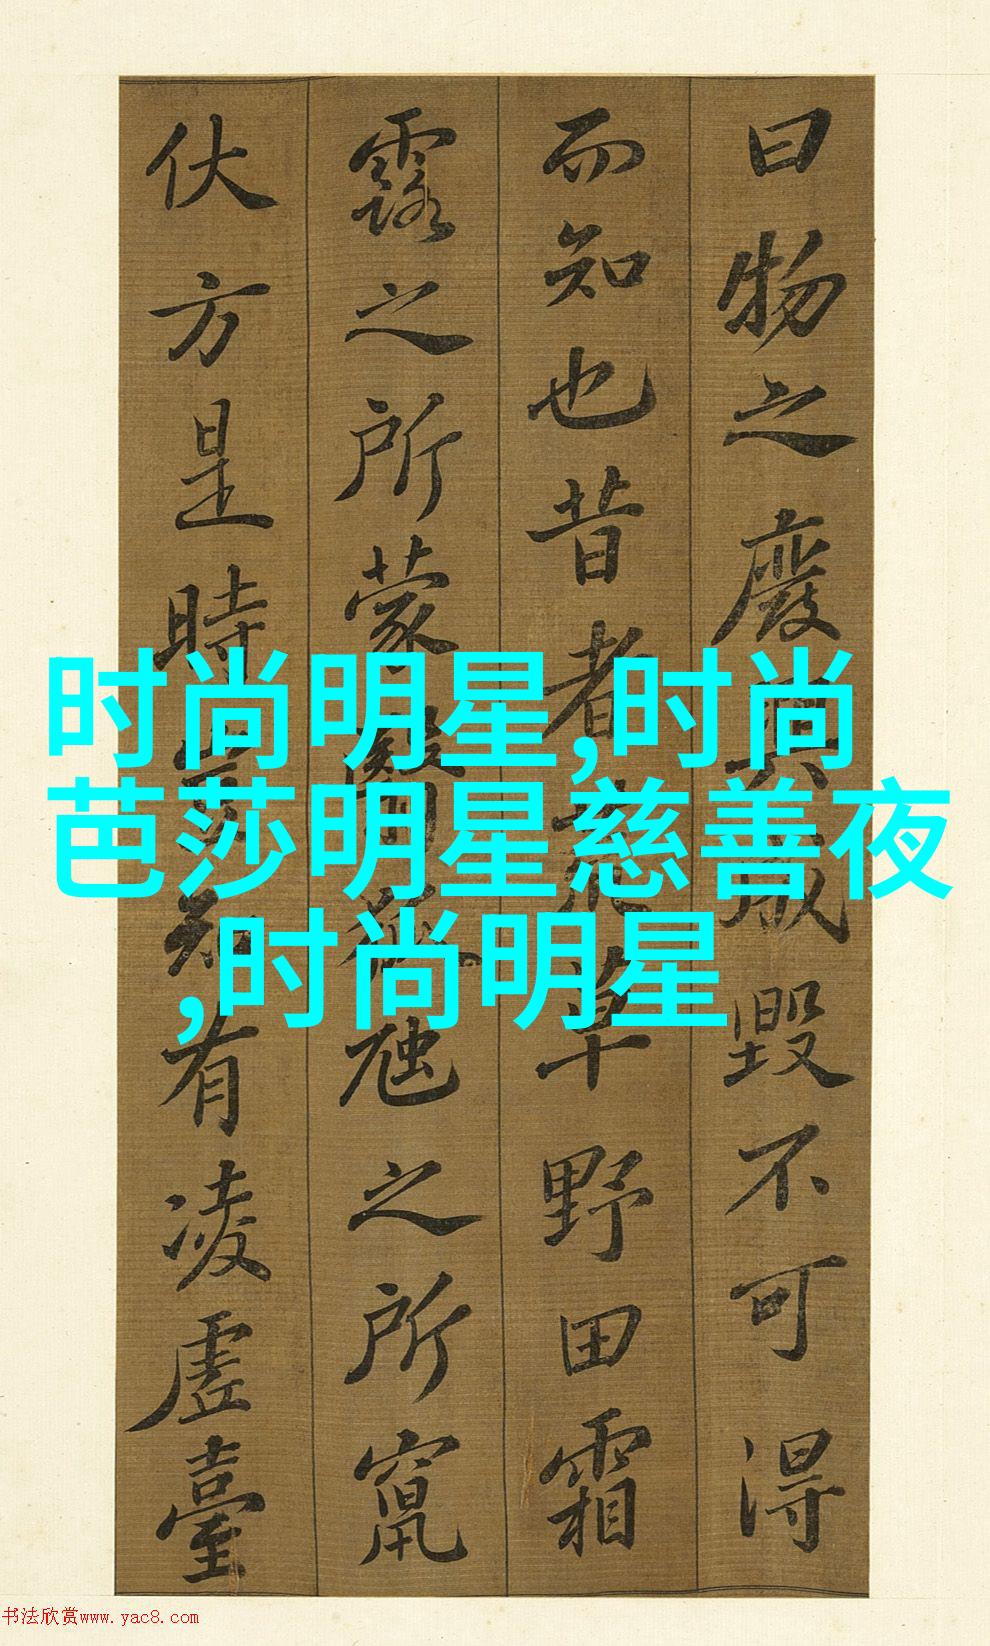 曰物之廢興成毀不可得
而知也昔者荒草野田霜
露之所蒙翳狐虺之所竄
伏方是時豈知有凌虛臺
时尚明星,时尚
芭莎明星慈善夜
,时尚明星
书法欣赏www.yac8.com